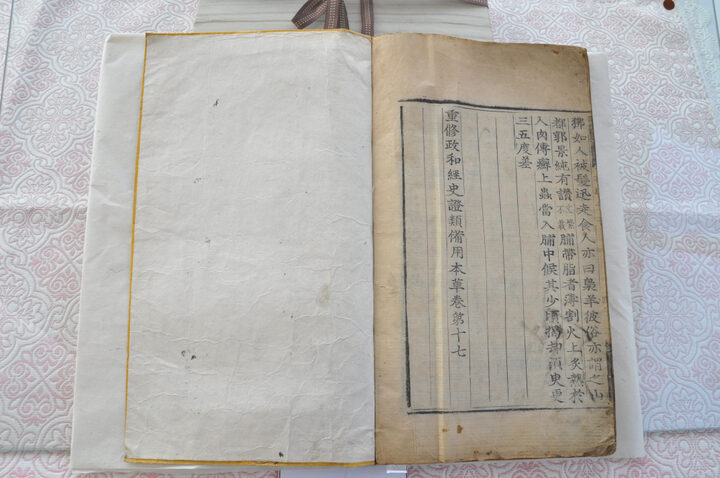 狒如人被髮迅走食人亦曰梟羊彼俗亦謂之山
都郭景純有讚文繁不載脯帶脂者薄割火上炙熱於
人肉傳癬上蟲當入脯中候其少頃揭却須臾更
三五度差
重修政和經史證類備用本草卷第十七